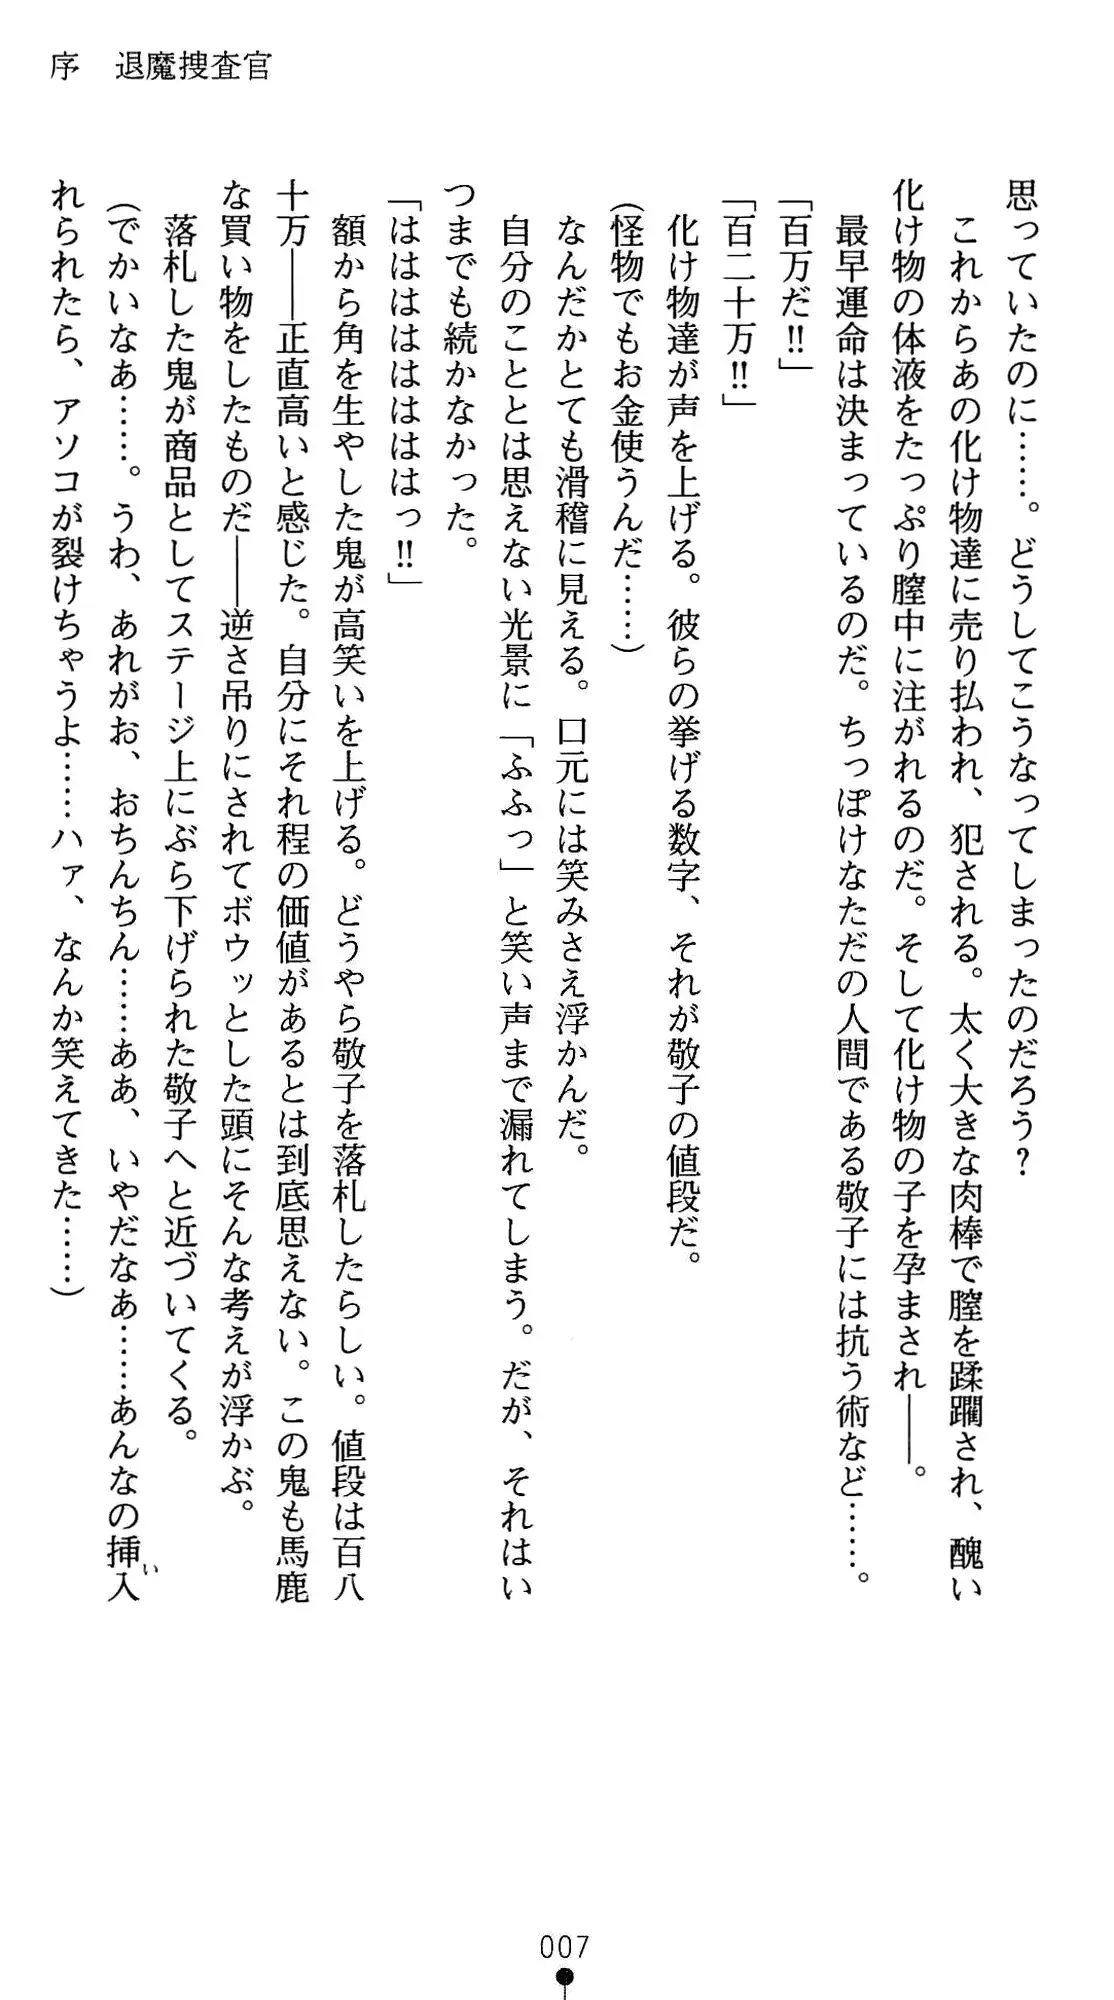 序　退魔捜査官
思っていたのに……。どうしてこうなってしまったのだろう？
　これからあの化け物達に売り払われ、犯される。太く大きな肉棒で膣を蹂躙され、醜い
化け物の体液をたっぷり膣中に注がれるのだ。そして化け物の子を孕まされ――。
　最早運命は決まっているのだ。ちっぽけなただの人間である敬子には抗う術など……。
「百万だ!!」
「百二十万!!」
　化け物達が声を上げる。彼らの挙げる数字、それが敬子の値段だ。
（怪物でもお金使うんだ……）
　なんだかとても滑稽に見える。口元には笑みさえ浮かんだ。
　自分のこととは思えない光景に「ふふっ」と笑い声まで漏れてしまう。だが、それはい
つまでも続かなかった。
「はははははははっ!!」
　額から角を生やした鬼が高笑いを上げる。どうやら敬子を落札したらしい。値段は百八
十万――正直高いと感じた。自分にそれ程の価値があるとは到底思えない。この鬼も馬鹿
な買い物をしたものだ――逆さ吊りにされてボウッとした頭にそんな考えが浮かぶ。
　落札した鬼が商品としてステージ上にぶら下げられた敬子へと近づいてくる。
（でかいなあ……。うわ、あれがお、おちんちん……ああ、いやだなあ……あんなの挿入い
れられたら、アソコが裂けちゃうよ……ハァ、なんか笑えてきた……）
007